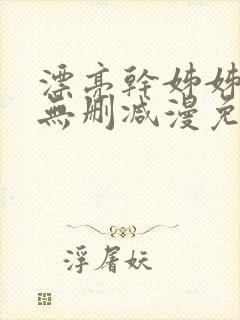 漂亮幹姊姊
無刪减漫免
浮屠妖